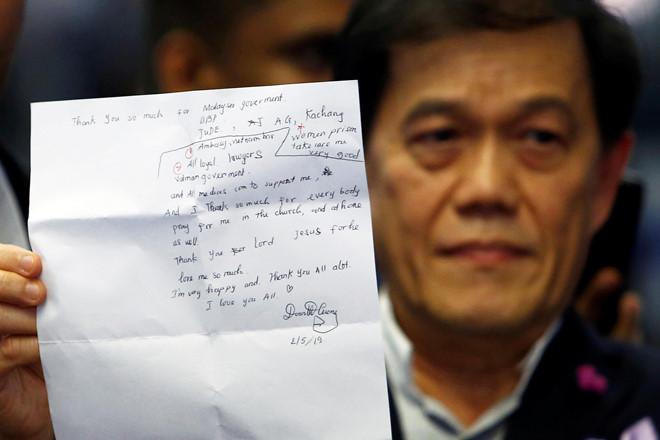 Thank You so much for Malaysia goverment.
JUDE, I A.G, Kachang
① Ambassy, vietnam
women prison
take care me
very good
② All loyal lawyers
vatnam goverment.
and All medias com to support me,
And I Thank so much for every body
pray for me in the church, and at home
as well.
Thank you Lord Jesus for he
love me so much.
I'm very happy and. Thank You All alot.
I love you All. ♡
2/5/19